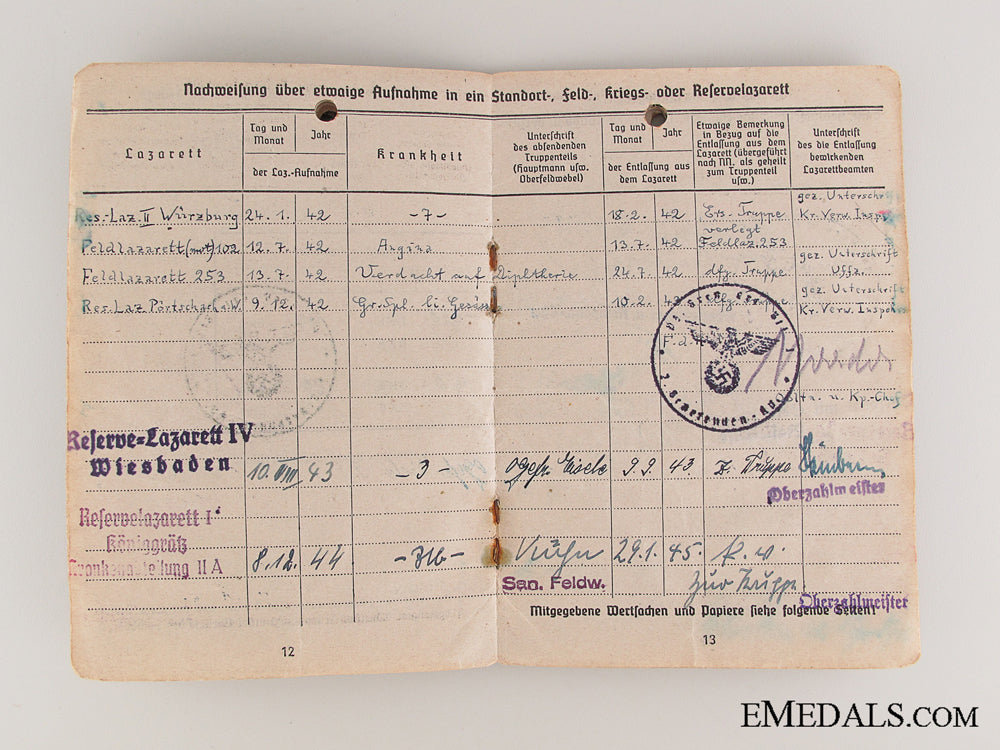 Nachweisung über etwaige Aufnahme in ein Standort-, Feld-, Kriegs- oder Reservelazarett
Lazarett
Tag und Monat
Jahr
der Laz.-Aufnahme
Krankheit
Unterschrift
des absendenden
Truppenteils
(Hauptmann usw.
Oberfeldwebel)
Tag und Monat
Jahr
der Entlassung aus
dem Lazarett
Etwaige Bemerkung
in Bezug auf die
Entlassung aus dem
Lazarett (übergeführt
nach NN. als geheilt
zum Truppenteil
usw.)
Unterschrift
des die Entlassung
bewirkenden
Lazarettbeamten
Res.-Laz. II Würzburg 24. 1. 42 -7- 18.2. 42 Ers. Truppe gez. Unterschr. Kr. Verw. Insp.
Feldlazarett (mot) 102 12. 7. 42 Angina 13.7. 42 verlegt Feldlaz. 253
Feldlazarett 253 13. 7. 42 Verdacht auf Diphterie 24.7. 42 dfg. Truppe gez. Unterschrift Uffz.
Res. Laz. Pörtschach a. W. 9. 12. 42 Gr. Spl. li. 10.2. dfg. Truppe gez. Unterschrift Kr. Verw. Inspektor
F. d. R.
u. Kp.-Chef
Reserve-Lazarett IV
Wiesbaden
10. VIII 43 -3- Ogefr. Eisele 9.9. 43 z. Truppe
Oberzahlmeister
Reservelazarett I
Königgrätz
Krankenabteilung II A
8.12. 44 -31b- Kuhn 29.1. 45. k. v.
zur Truppe.
San. Feldw.
Oberzahlmeister
Mitgegebene Wertsachen und Papiere siehe folgende Seiten!
12
13
EMEDALS.COM